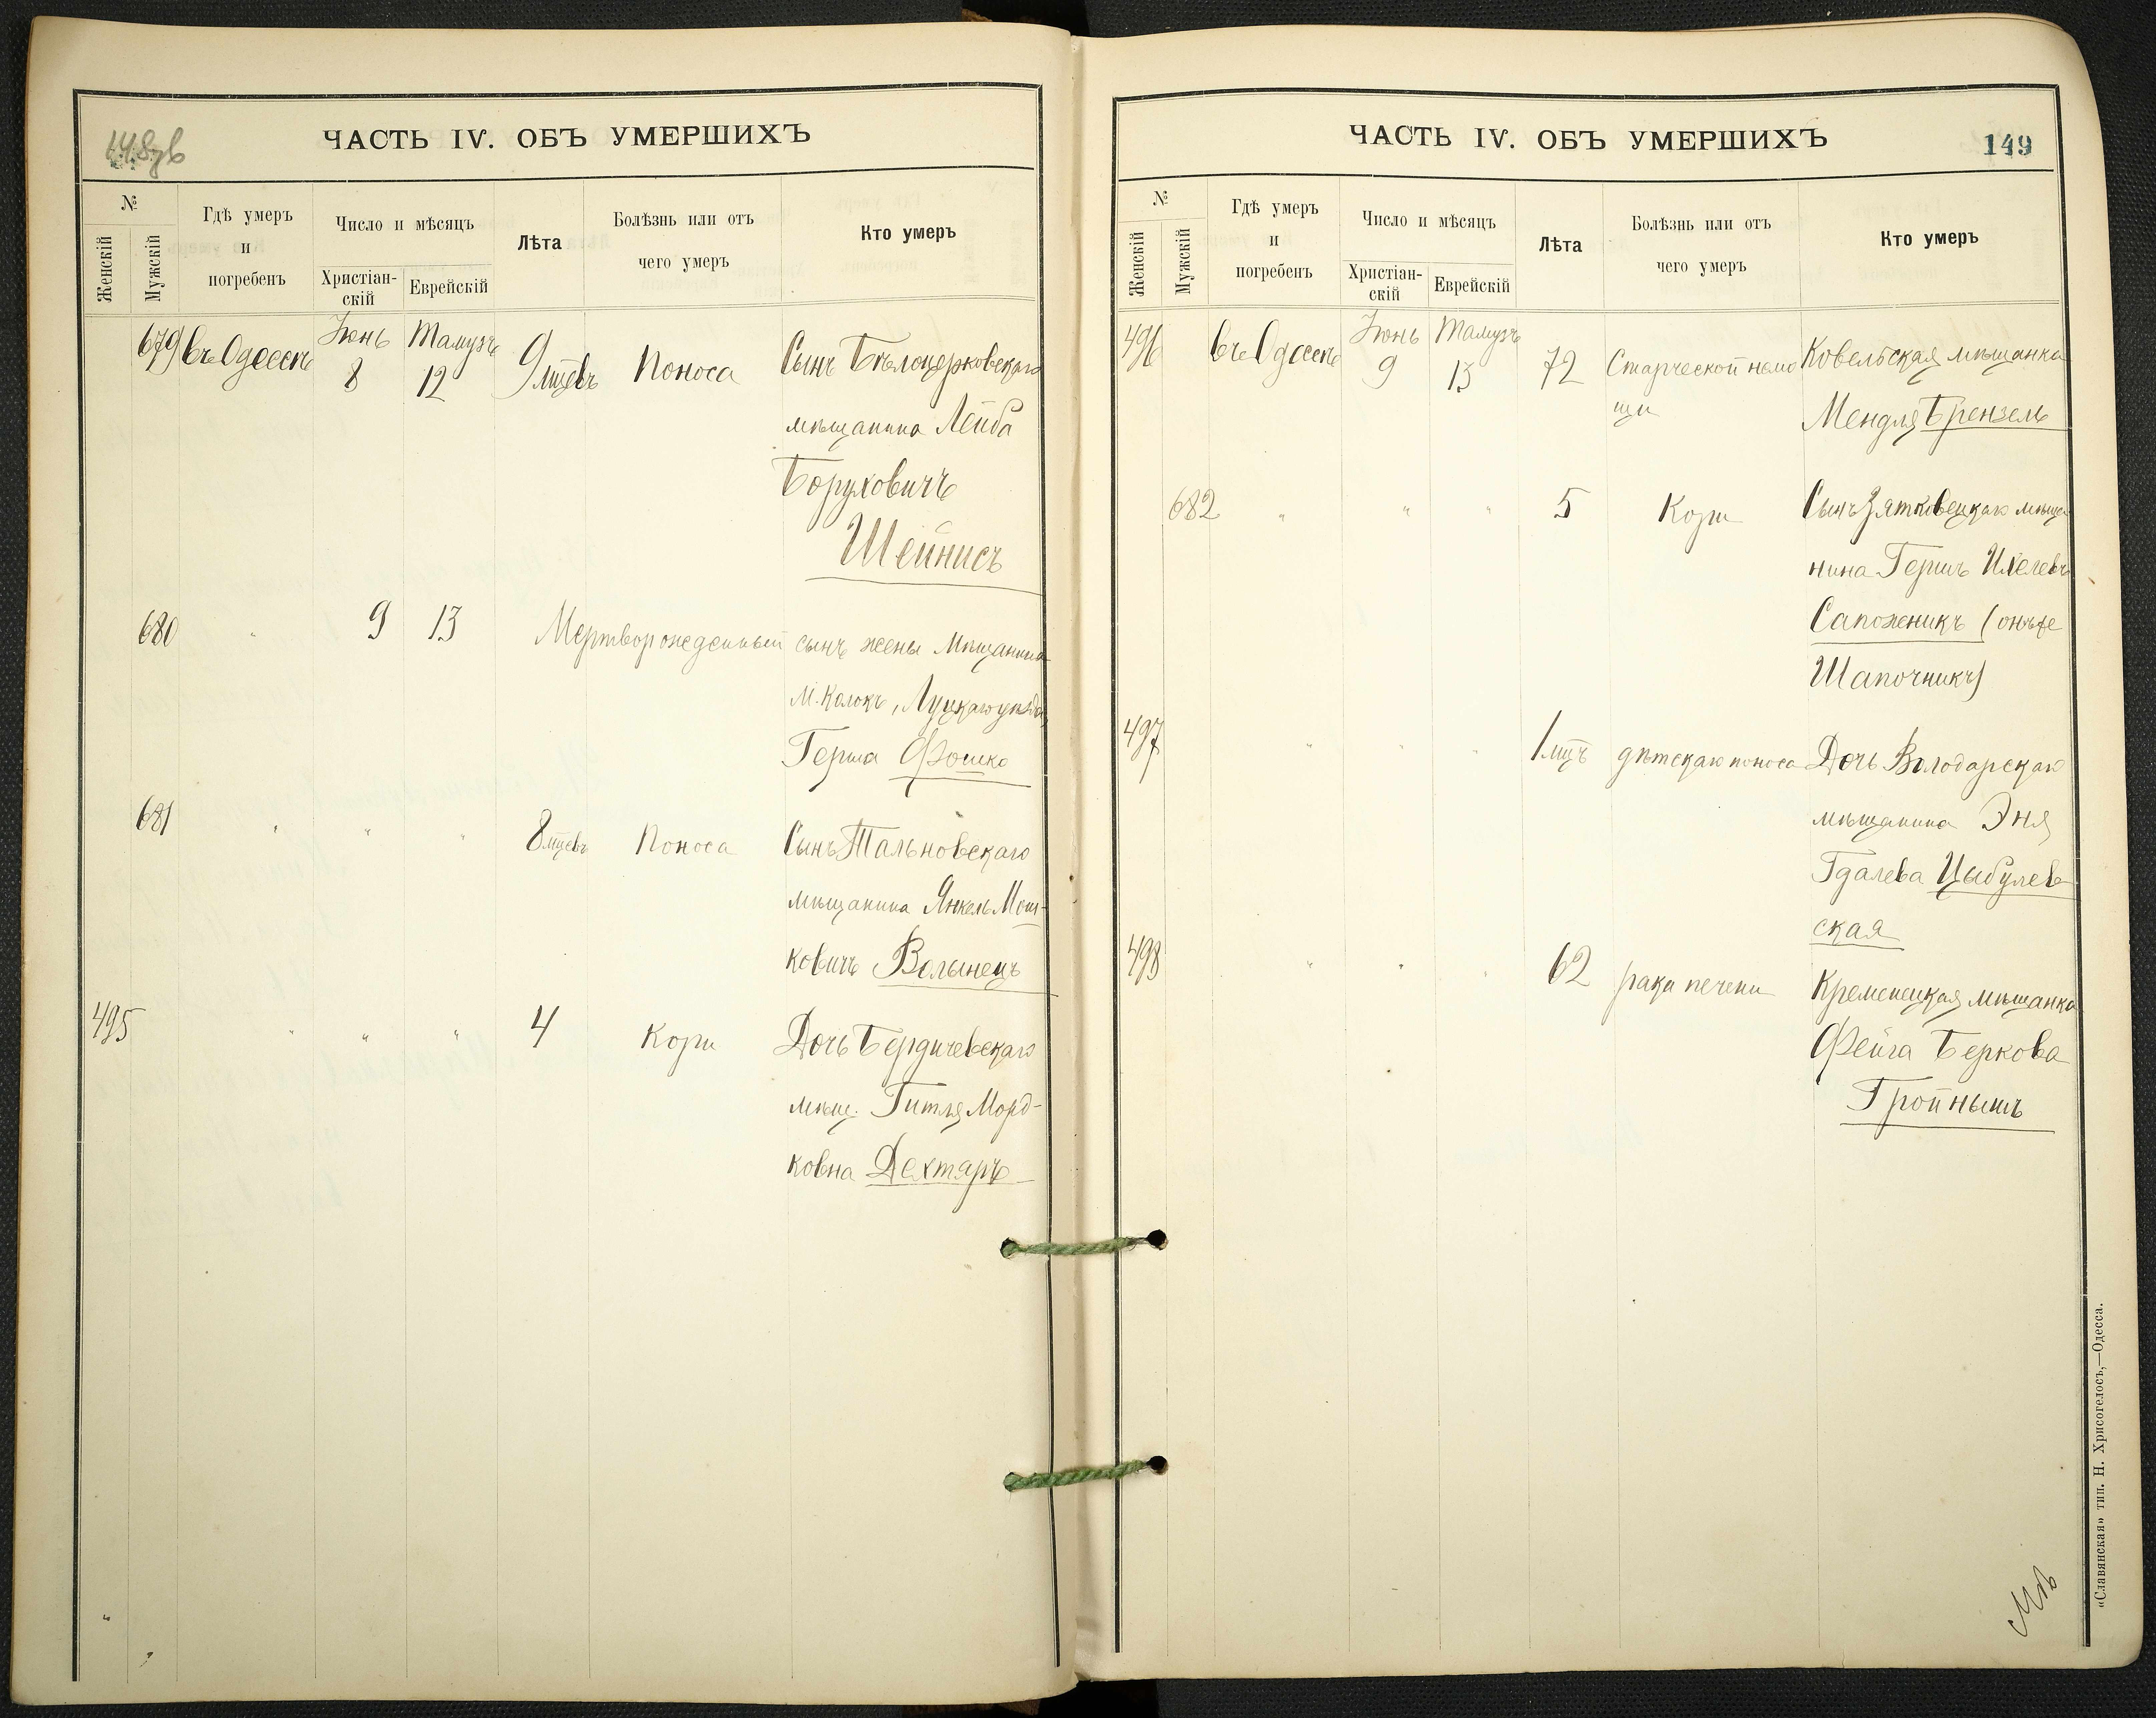 148 об
ЧАСТЬ IV. ОБЪ УМЕРШИХЪ
№
Женскій
Мужскій
Гдѣ умеръ
и
погребенъ
Число и мѣсяцъ
Христіан-
скій
Еврейскій
Лѣта
Болѣзнь или отъ
чего умеръ
Кто умеръ
679 въ Одессѣ Іюнь 8 Тамузъ 12 9 мцевъ Поноса Сынъ Бѣлоцерковскаго
мѣщанина Лейба
Боруховичъ
Шейнисъ
680 " 9 13 Мертворожденный сынъ жены мѣщанина
М. Колокъ, Луцкаго уѣзда,
Герша Фошко
681 " " " 8 мцевъ Поноса Сынъ Тальновскаго
мѣщанина Янкель Мош-
ковичъ Волынецъ
495 " " " 4 Кори Дочь Бердичевскаго
мѣщ. Гитля Морд-
ковна Дехтяръ
ЧАСТЬ IV. ОБЪ УМЕРШИХЪ
149
№
Женскій
Мужскій
Гдѣ умеръ
и
погребенъ
Число и мѣсяцъ
Христіан-
скій
Еврейскій
Лѣта
Болѣзнь или отъ
чего умеръ
Кто умеръ
496 въ Одессѣ Іюнь 9 Тамузъ 13 72 Старческой немо Ковельская мѣщанка
щи Мендля Брензель
682 " " " 5 Кори Сынъ Зятковецкаго мѣща
нина Гершъ Ихелевъ
Сапожникъ (онъ же
Шапочникъ)
497 " " " 1 мцъ дѣтскаго поноса Дочь Володарскаго
мѣщанина Эня
Гдалева Цыбулев
ская
498 " " " 62 рака печени Кременецкая мѣщанка
Фейга Беркова
Гройнышъ
«Славянская» тип. Н. Хрисогелосъ,—Одесса.